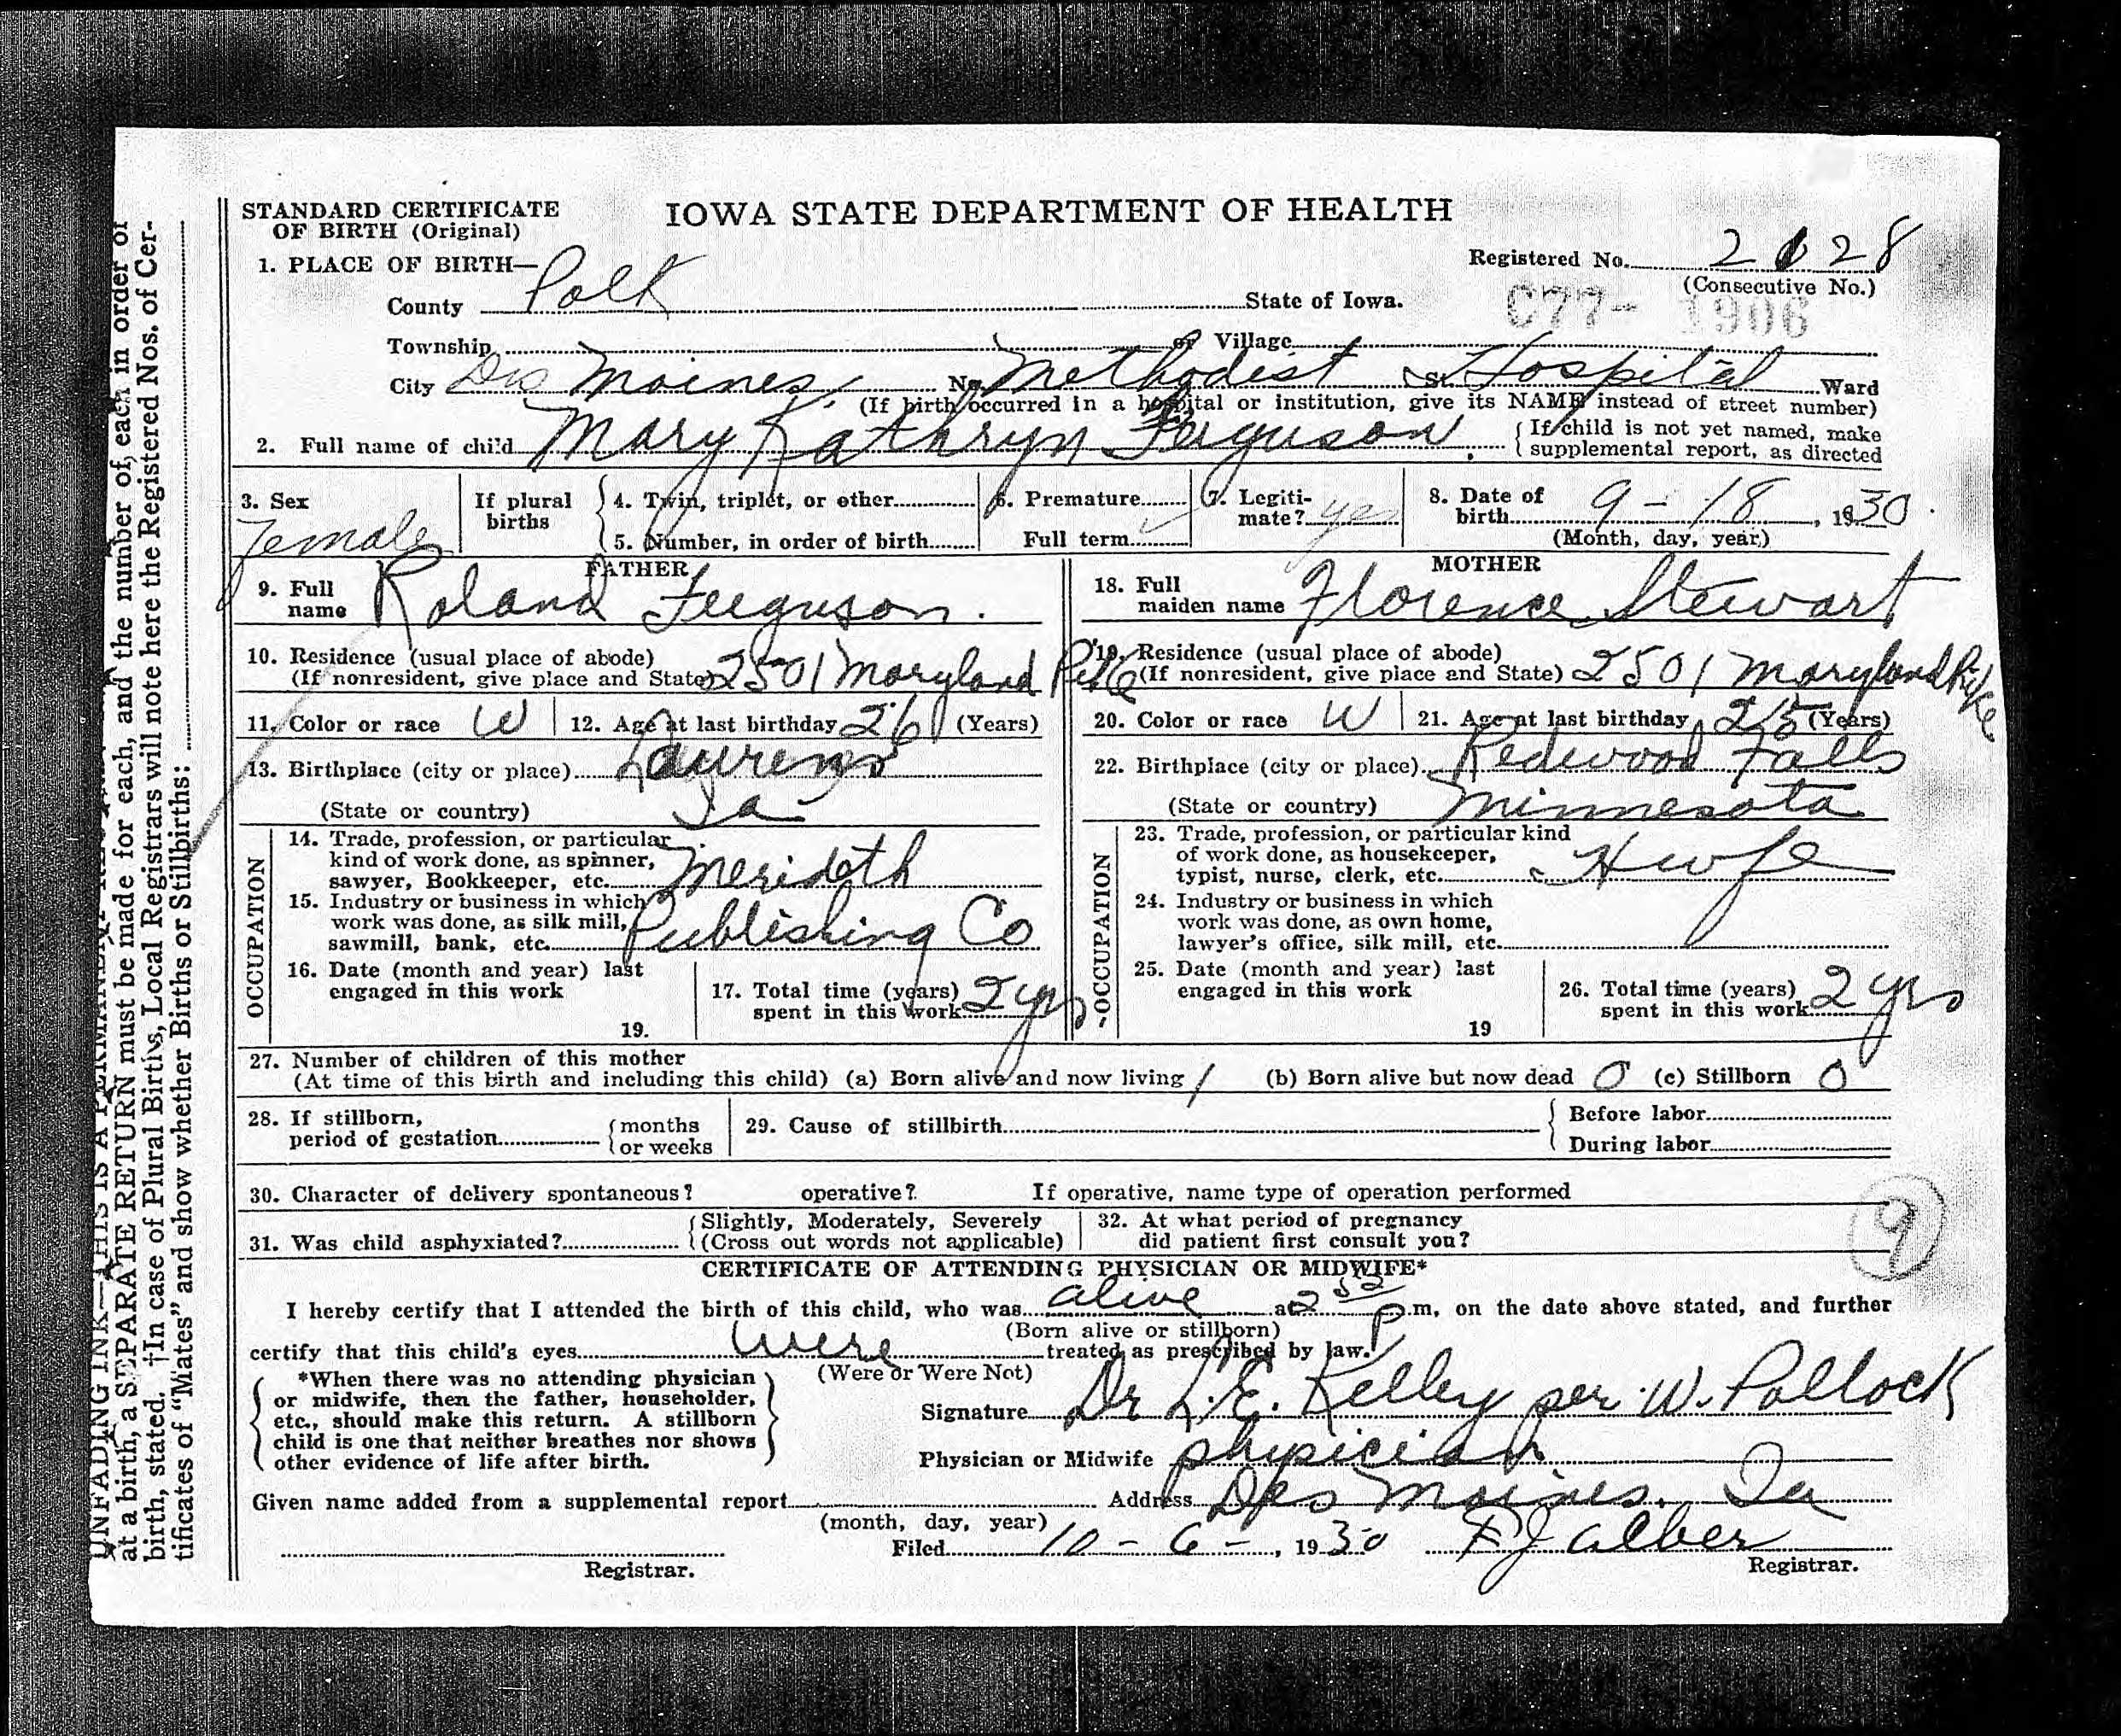 STANDARD CERTIFICATE OF BIRTH (Original)
IOWA STATE DEPARTMENT OF HEALTH
Registered No. 2128
(Consecutive No.)
C77- 1906
1. PLACE OF BIRTH—
County Polk State of Iowa.
Township or Village
City Des Moines, No. Methodist St. Hospital Ward
(If birth occurred in a hospital or institution, give its NAME instead of street number)
2. Full name of child Mary Kathryn Ferguson. { If child is not yet named, make supplemental report, as directed
3. Sex Female
If plural births { 4. Twin, triplet, or other
5. Number, in order of birth
6. Premature
Full term ✓
7. Legitimate? yes
8. Date of birth 9 - 18, 1930.
(Month, day, year)
FATHER
9. Full name Roland Ferguson.
10. Residence (usual place of abode)
(If nonresident, give place and State) 2501 Maryland Pike
11. Color or race W 12. Age at last birthday 26 (Years)
13. Birthplace (city or place) Laurens
(State or country) Ia
OCCUPATION
14. Trade, profession, or particular
kind of work done, as spinner,
sawyer, Bookkeeper, etc. Merideth
15. Industry or business in which
work was done, as silk mill,
sawmill, bank, etc. Publishing Co
16. Date (month and year) last
engaged in this work
19.
17. Total time (years)
spent in this work 2 yrs
MOTHER
18. Full maiden name Florence Stewart
19. Residence (usual place of abode)
(If nonresident, give place and State) 2501 Maryland Pike
20. Color or race W 21. Age at last birthday 25 (Years)
22. Birthplace (city or place) Redwood Falls
(State or country) Minnesota
OCCUPATION
23. Trade, profession, or particular kind
of work done, as housekeeper,
typist, nurse, clerk, etc. Hwfe
24. Industry or business in which
work was done, as own home,
lawyer's office, silk mill, etc.
25. Date (month and year) last
engaged in this work
19
26. Total time (years)
spent in this work 2 yrs
27. Number of children of this mother
(At time of this birth and including this child) (a) Born alive and now living 1 (b) Born alive but now dead 0 (c) Stillborn 0
28. If stillborn,
period of gestation { months
or weeks
29. Cause of stillbirth { Before labor
During labor
30. Character of delivery spontaneous? operative? If operative, name type of operation performed
31. Was child asphyxiated? { Slightly, Moderately, Severely
(Cross out words not applicable)
32. At what period of pregnancy
did patient first consult you?
9
CERTIFICATE OF ATTENDING PHYSICIAN OR MIDWIFE*
I hereby certify that I attended the birth of this child, who was alive at 2 52 P.m, on the date above stated, and further
(Born alive or stillborn)
certify that this child's eyes were treated as prescribed by law.
(Were or Were Not)
*When there was no attending physician
or midwife, then the father, householder,
etc., should make this return. A stillborn
child is one that neither breathes nor shows
other evidence of life after birth.
Signature Dr L.E. Kelley per W. Pollock
Physician or Midwife physician
Given name added from a supplemental report
(month, day, year)
Address Des Moines, Ia
Filed 10 - 6 -, 1930 F J Alber
Registrar.
Registrar.
UNFADING INK—THIS IS A PERMANENT
at a birth, a SEPARATE RETURN must be made for each, and the number of each in order of
birth, stated. †In case of Plural Births, Local Registrars will note here the Registered Nos. of Cer-
tificates of "Mates" and show whether Births or Stillbirths: